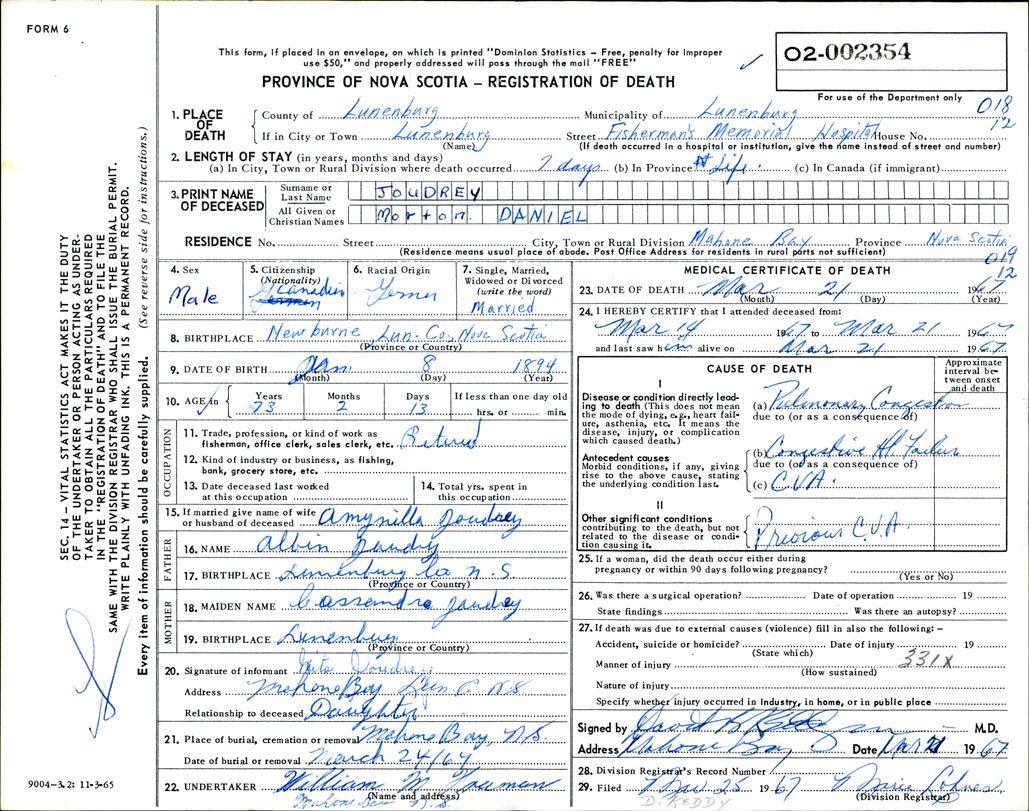 FORM 6
This form, if placed in an envelope, on which is printed "Dominion Statistics – Free, penalty for improper
use $50," and properly addressed will pass through the mail "FREE"
02-002354
PROVINCE OF NOVA SCOTIA – REGISTRATION OF DEATH
For use of the Department only
018
12
SEC. 14 – VITAL STATISTICS ACT MAKES IT THE DUTY
OF THE UNDERTAKER OR PERSON ACTING AS UNDER-
TAKER TO OBTAIN ALL THE PARTICULARS REQUIRED
IN THE "REGISTRATION OF DEATH" AND TO FILE THE
SAME WITH THE DIVISION REGISTRAR WHO SHALL ISSUE THE BURIAL PERMIT.
WRITE PLAINLY WITH UNFADING INK. THIS IS A PERMANENT RECORD.
Every item of information should be carefully supplied. (See reverse side for instructions.)
1. PLACE OF DEATH
County of Lunenburg Municipality of Lunenburg
If in City or Town Lunenburg Street Fisherman's Memorial Hospital House No.
(Name) (If death occurred in a hospital or institution, give the name instead of street and number)
2. LENGTH OF STAY (in years, months and days)
(a) In City, Town or Rural Division where death occurred 7 days (b) In Province Life (c) In Canada (if immigrant)
3. PRINT NAME OF DECEASED
Surname or Last Name JOUDREY
All Given or Christian Names Morton DANIEL
RESIDENCE No. Street City, Town or Rural Division Mahone Bay Province Nova Scotia
(Residence means usual place of abode. Post Office Address for residents in rural parts not sufficient)
019
12
4. Sex
Male
5. Citizenship
(Nationality)
Canadian
6. Racial Origin
7. Single, Married,
Widowed or Divorced
(write the word)
Married
8. BIRTHPLACE Newburne Lun. Co., Nova Scotia
(Province or Country)
9. DATE OF BIRTH Jan. 8 1894
(Month) (Day) (Year)
10. AGE in Years 73 Months 2 Days 13 If less than one day old
hrs. or min.
OCCUPATION
11. Trade, profession, or kind of work as
fisherman, office clerk, sales clerk, etc. Retired
12. Kind of industry or business, as fishing,
bank, grocery store, etc.
13. Date deceased last worked
at this occupation
14. Total yrs. spent in
this occupation
15. If married give name of wife
or husband of deceased Amynilla Joudrey
FATHER
16. NAME Albin Joudry
17. BIRTHPLACE Lunenburg Co N.S.
(Province or Country)
MOTHER
18. MAIDEN NAME Cassendra Joudrey
19. BIRTHPLACE Lunenburg
(Province or Country)
20. Signature of informant Joudrey
Address Mahone Bay Lun C. NS
Relationship to deceased Daughter
21. Place of burial, cremation or removal Mahone Bay, N.S.
Date of burial or removal March 24/67
22. UNDERTAKER William M.
(Name and address)
Mahone Bay N.S.
9004-3.2: 11-3-65
MEDICAL CERTIFICATE OF DEATH
23. DATE OF DEATH Mar 21 1967
(Month) (Day) (Year)
24. I HEREBY CERTIFY that I attended deceased from:
Mar 14 1967 to Mar 21 1967
and last saw him alive on Mar 21 1967
CAUSE OF DEATH
Approximate interval between onset and death
I
Disease or condition directly lead-
ing to death (This does not mean
the mode of dying, e.g., heart fail-
ure, asthenia, etc. It means the
disease, injury, or complication
which caused death.)
(a) Pulmonary Congestion
due to (or as a consequence of)
Antecedent causes
Morbid conditions, if any, giving
rise to the above cause, stating
the underlying condition last.
(b) Congestive Ht. Failure
due to (or as a consequence of)
(c) C.V.A.
II
Other significant conditions
contributing to the death, but not
related to the disease or condi-
tion causing it.
Previous C.V.A.
25. If a woman, did the death occur either during
pregnancy or within 90 days following pregnancy?
(Yes or No)
26. Was there a surgical operation? Date of operation 19
State findings Was there an autopsy?
27. If death was due to external causes (violence) fill in also the following: –
Accident, suicide or homicide? Date of injury 19
(State which)
331X
Manner of injury
(How sustained)
Nature of injury
Specify whether injury occurred in industry, in home, or in public place
Signed by M.D.
Address Mahone Bay Date Mar 21 1967
28. Division Registrar's Record Number
29. Filed Mar 25 1967
(Division Registrar)
D. REDDY